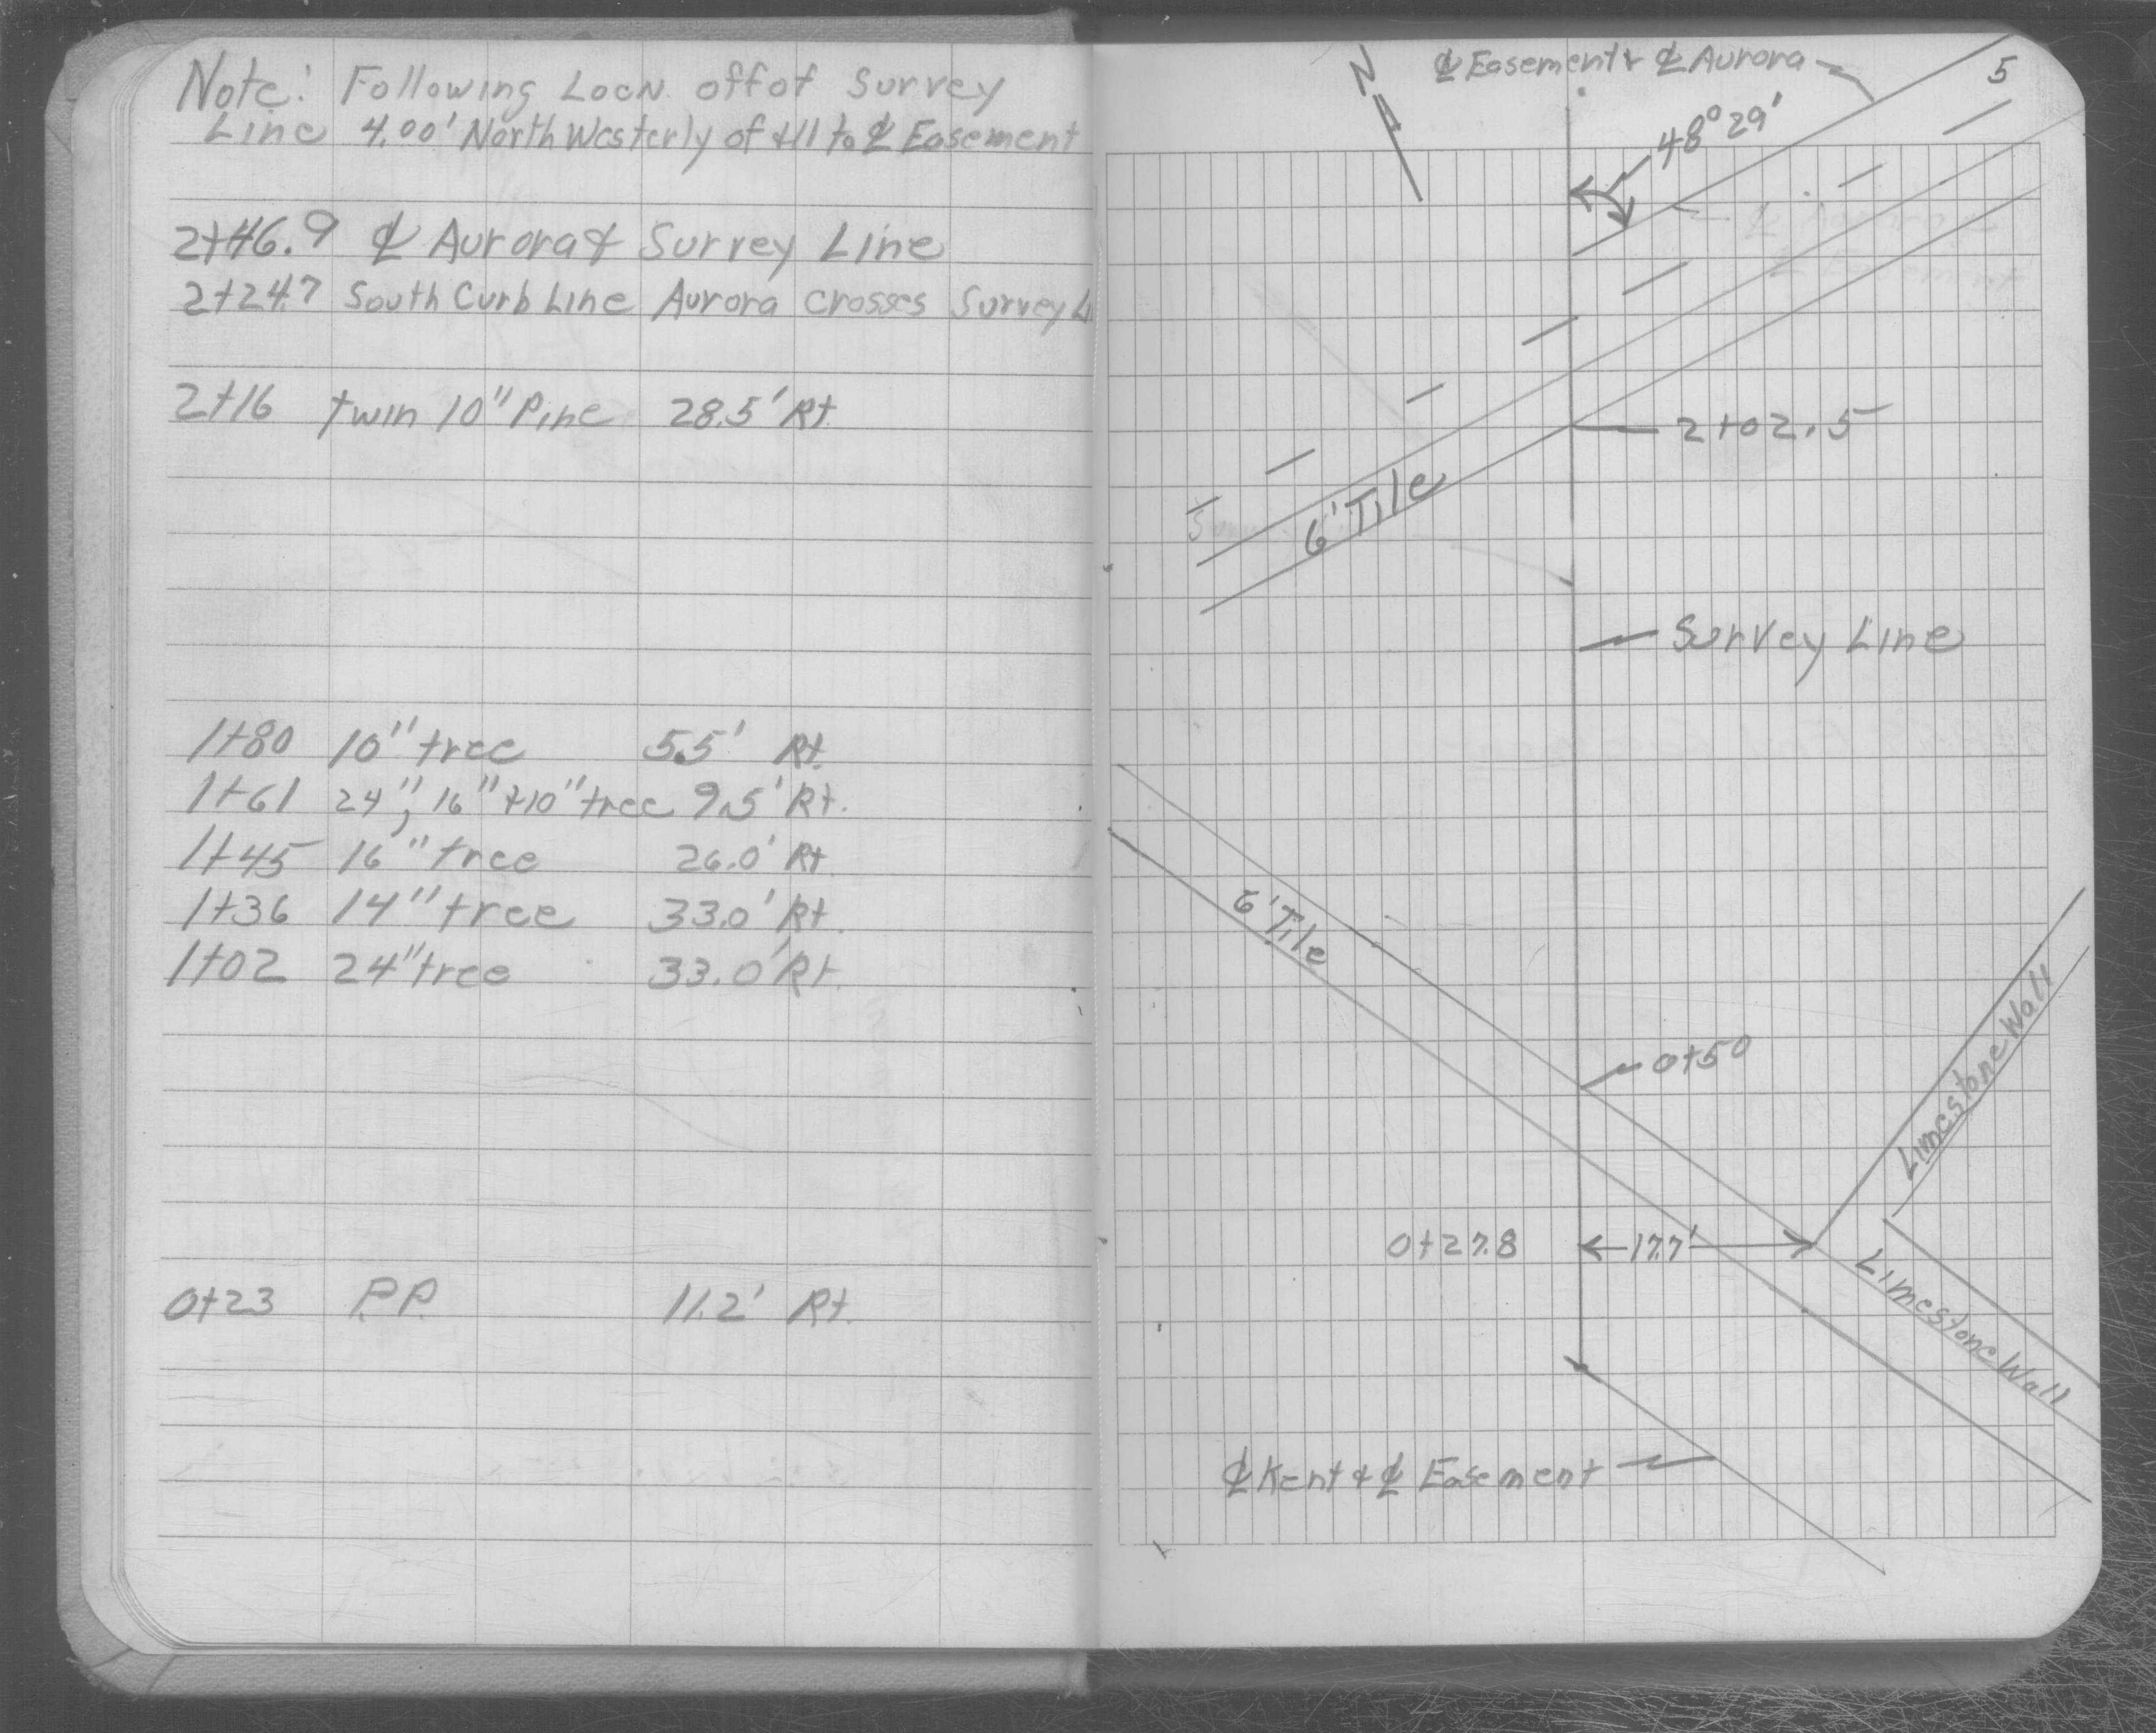 Note: Following Locn. off of Survey
Line 4.00' North Westerly of + 11 to ℄ Easement
2+46.9 ℄ Aurora & Survey Line
2+24.7 South Curb Line Aurora Crosses Survey L
2+16 twin 10" Pine 28.5' Rt.
1+80 10" tree 5.5' Rt.
1+61 24", 16" + 10" tree 9.5' Rt.
1+45 16" tree 26.0' Rt.
1+36 14" tree 33.0' Rt.
1+02 24" tree 33.0' Rt.
0+23 P.P. 11.2' Rt.
N
℄ Easement & ℄ Aurora
5
48° 29'
2+02.5
6' Tile
Survey Line
6' Tile
0+50
Limestone Wall
0+27.8
17.7'
Limestone Wall
℄ Kent & ℄ Easement